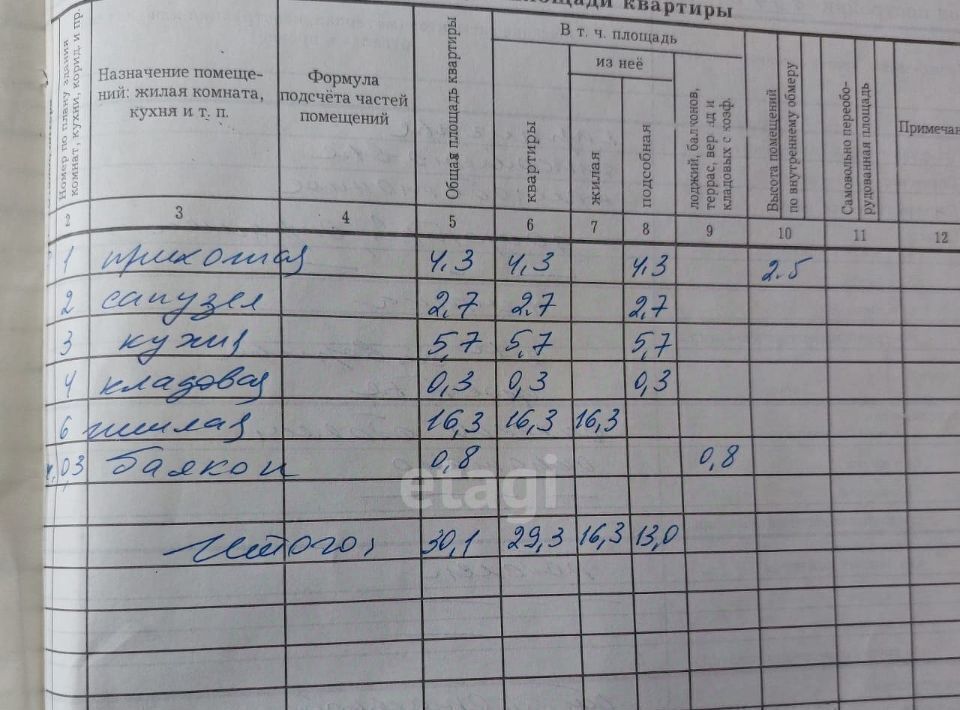 площади квартиры
Номер по плану здания
комнат, кухни, корид. и пр.
Назначение помеще-
ний: жилая комната,
кухня и т. п.
Формула
подсчёта частей
помещений
Общая площадь квартиры
В т. ч. площадь
квартиры
из неё
жилая
подсобная
лоджий, балконов,
террас, веранд и
кладовых с коэф.
Высота помещений
по внутреннему обмеру
Самовольно переобо-
рудованная площадь
Примечан
2 3 4 5 6 7 8 9 10 11 12
1 прихожая 4,3 4,3 4,3 2.5
2 санузел 2,7 2.7 2,7
3 кухня 5,7 5,7 5,7
4 кладовая 0,3 0,3 0,3
6 жилая 16,3 16,3 16,3
0,3 балкон 0,8 0,8
etagi
Итого: 30,1 29,3 16,3 13,0